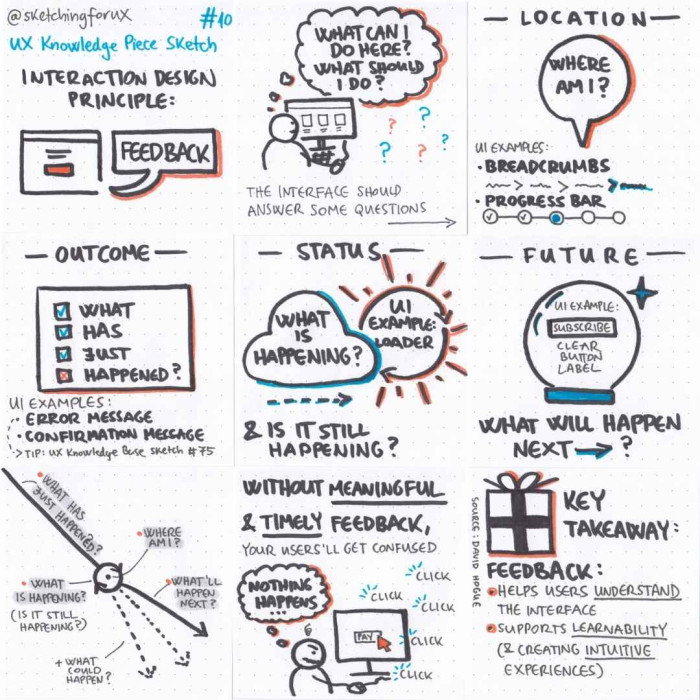 @sketchingforux
#10
UX Knowledge Piece Sketch
INTERACTION DESIGN
PRINCIPLE:
FEEDBACK
WHAT CAN I
DO HERE?
WHAT SHOULD
I DO?
?
?
?
?
THE INTERFACE SHOULD
ANSWER SOME QUESTIONS
— LOCATION —
WHERE
AM I?
UI EXAMPLES:
• BREADCRUMBS
• PROGRESS BAR
— OUTCOME —
WHAT
HAS
JUST
HAPPENED?
UI EXAMPLES:
• ERROR MESSAGE
• CONFIRMATION MESSAGE
> TIP: UX Knowledge Base Sketch #75
— STATUS —
WHAT
IS
HAPPENING?
UI
EXAMPLE:
LOADER
& IS IT STILL
HAPPENING?
— FUTURE —
UI EXAMPLE:
SUBSCRIBE
CLEAR
BUTTON
LABEL
WHAT WILL HAPPEN
NEXT → ?
• WHAT HAS
JUST HAPPENED?
• WHERE
AM I?
• WHAT
IS HAPPENING?
(IS IT STILL
HAPPENING?)
• WHAT'LL
HAPPEN
NEXT?
+ WHAT
COULD
HAPPEN?
WITHOUT MEANINGFUL
& TIMELY FEEDBACK,
YOUR USERS'LL GET CONFUSED
NOTHING
HAPPENS...
PAY
CLICK
CLICK
CLICK
CLICK
CLICK
SOURCE: DAVID HOGUE
KEY
TAKEAWAY:
FEEDBACK:
• HELPS USERS UNDERSTAND
THE INTERFACE
• SUPPORTS LEARNABILITY
(& CREATING INTUITIVE
EXPERIENCES)